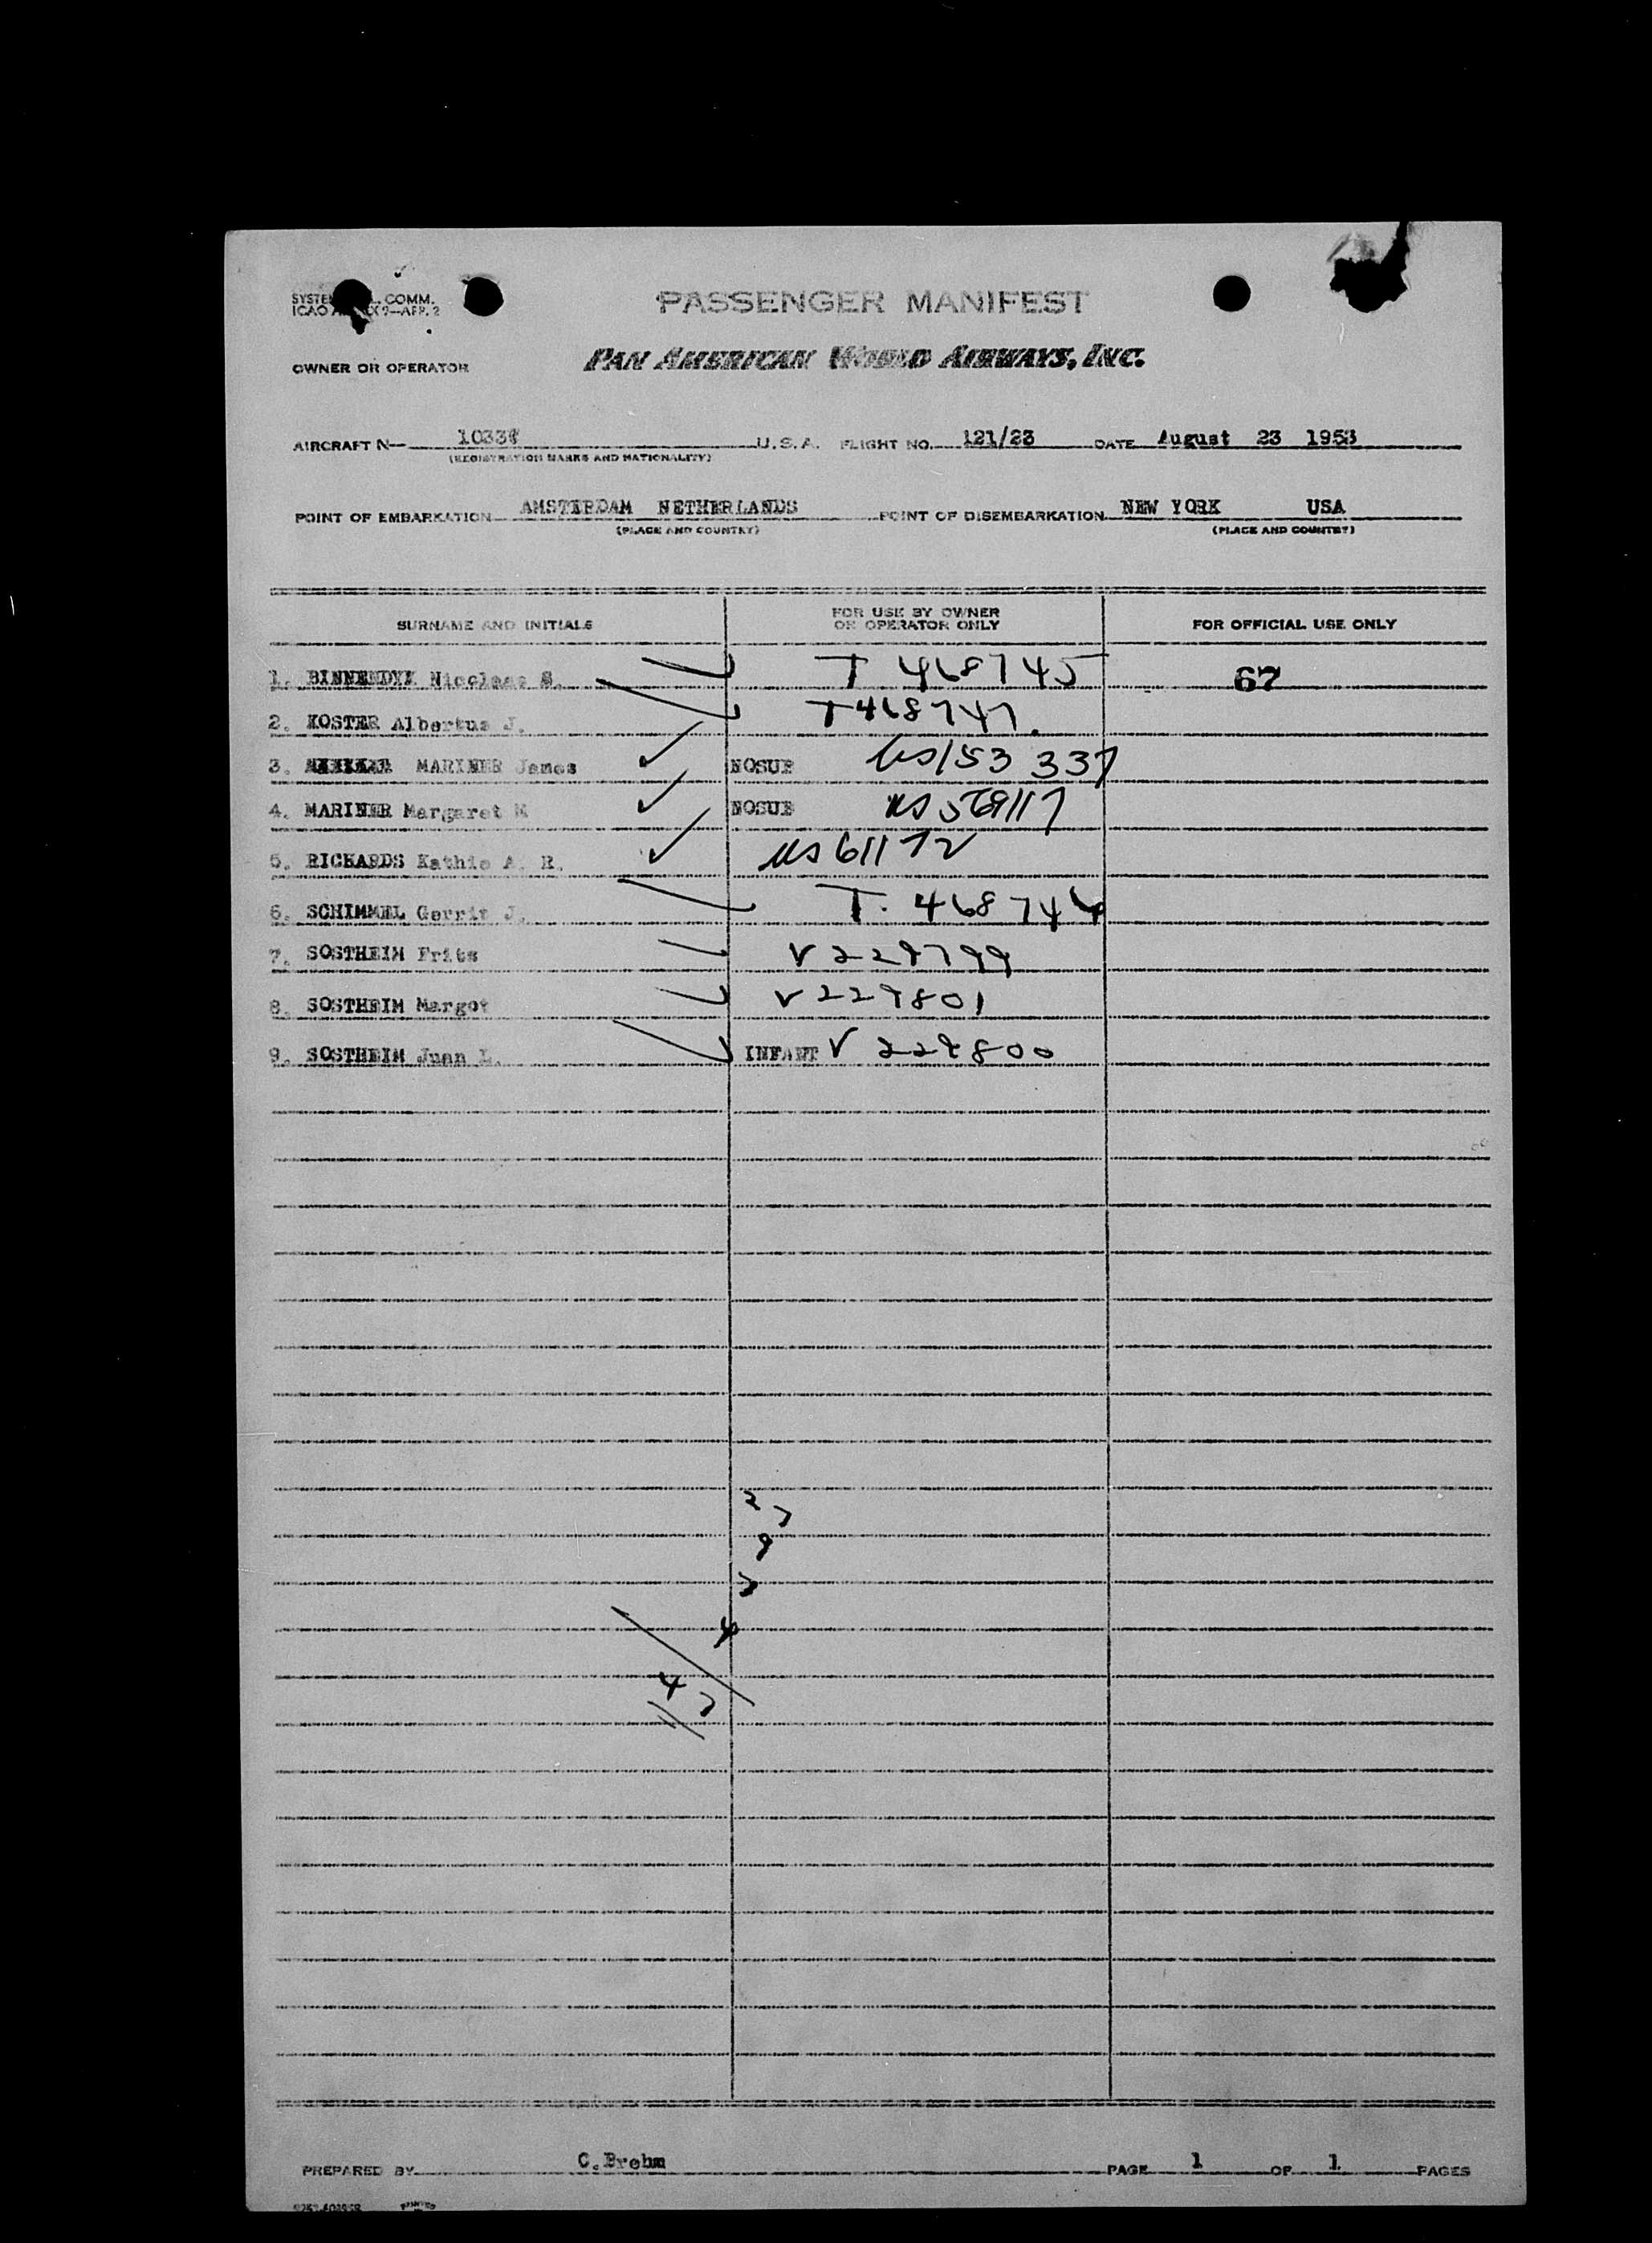 PASSENGER MANIFEST
COMM.
ICAO 9—APP. 2
OWNER OR OPERATOR PAN AMERICAN WORLD AIRWAYS, INC.
AIRCRAFT N— U.S.A. FLIGHT NO. 121/23 DATE August 23 1953
(REGISTRATION MARKS AND NATIONALITY)
POINT OF EMBARKATION AMSTERDAM NETHERLANDS POINT OF DISEMBARKATION NEW YORK USA
(PLACE AND COUNTRY) (PLACE AND COUNTRY)
SURNAME AND INITIALS FOR USE BY OWNER OR OPERATOR ONLY FOR OFFICIAL USE ONLY
1. BINNENDYK Nicolaas S. T 468745 67
2. KOSTER Albertus J. T468747
3. MARINER James NOSUB US153337
4. MARINER Margaret M NOSUB US
5. RICKARDS Kathie A. R. US 61172
6. SCHIMMEL Gerrit J. T. 468746
7. SOSTHEIM Frits V 229799
8. SOSTHEIM Margot V 229801
9. SOSTHEIM Juan L. INFANT V 229800
27
9
7
4
47
PREPARED BY C.Brehm PAGE 1 OF 1 PAGES